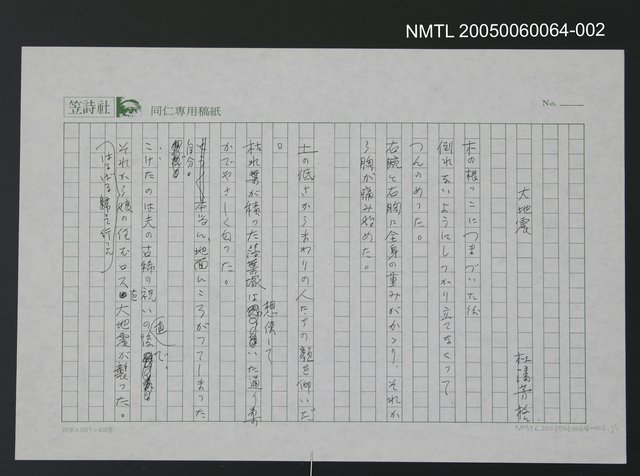 NMTL 20050060064-002
笠詩社 同仁専用稿紙
No.
大地震
杜潘芳格
木の根っこにつまづいた後
倒れないようにしっかり立てなくって、
つんのめった。
右腕と右胸に全身の重みがかゝり、それか
ら胸が痛み始めた。
土の低さからまわりの人たちの顔を仰いだ
。
枯れ葉が積った落葉塚は想像していた通り
かでやさしく匂った。
自分。
本当に地面にころがってしまった
こけたのは夫の古稀の祝いの後直ぐで、
それから娘の住むロスを大地震が襲った。
20字×20行=400字
NMTL 20050060064-002.1/1